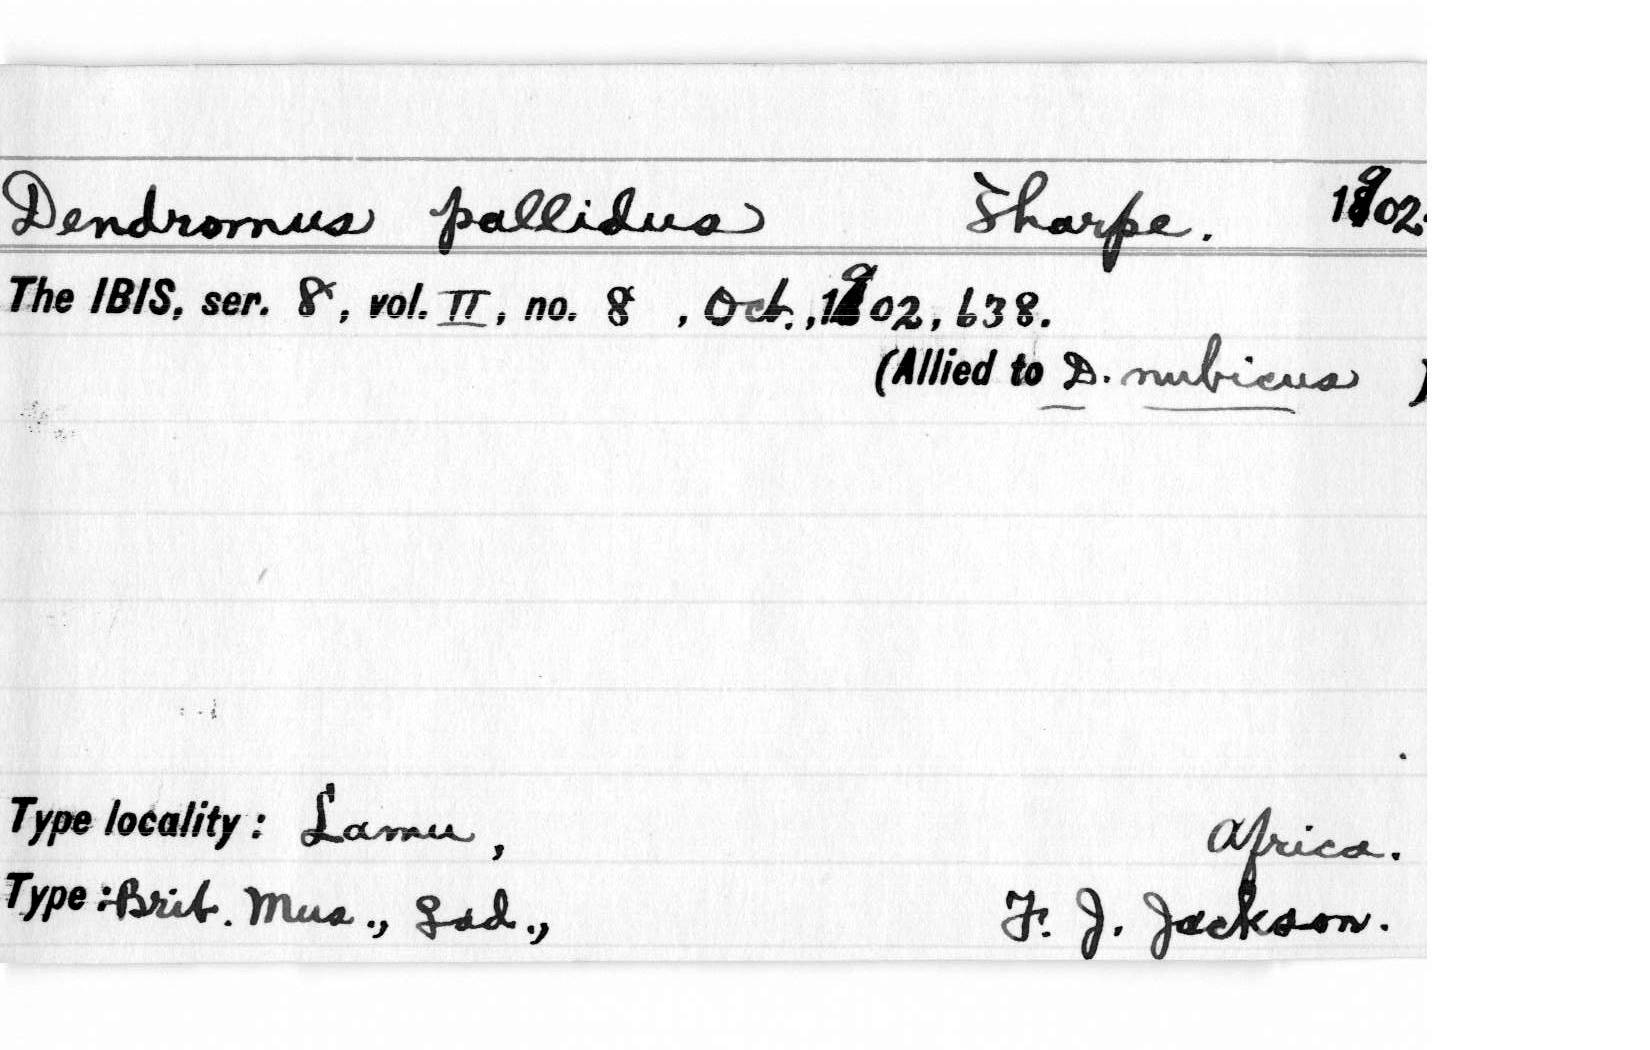 Dendromus pallidus Sharpe. 1902.
The IBIS, ser. 8, vol. II, no. 8, Oct., 1902, 638.
(Allied to D. nubicus )
Type locality: Lamu, Africa.
Type: Brit. Mus., gad., F. J. Jackson.